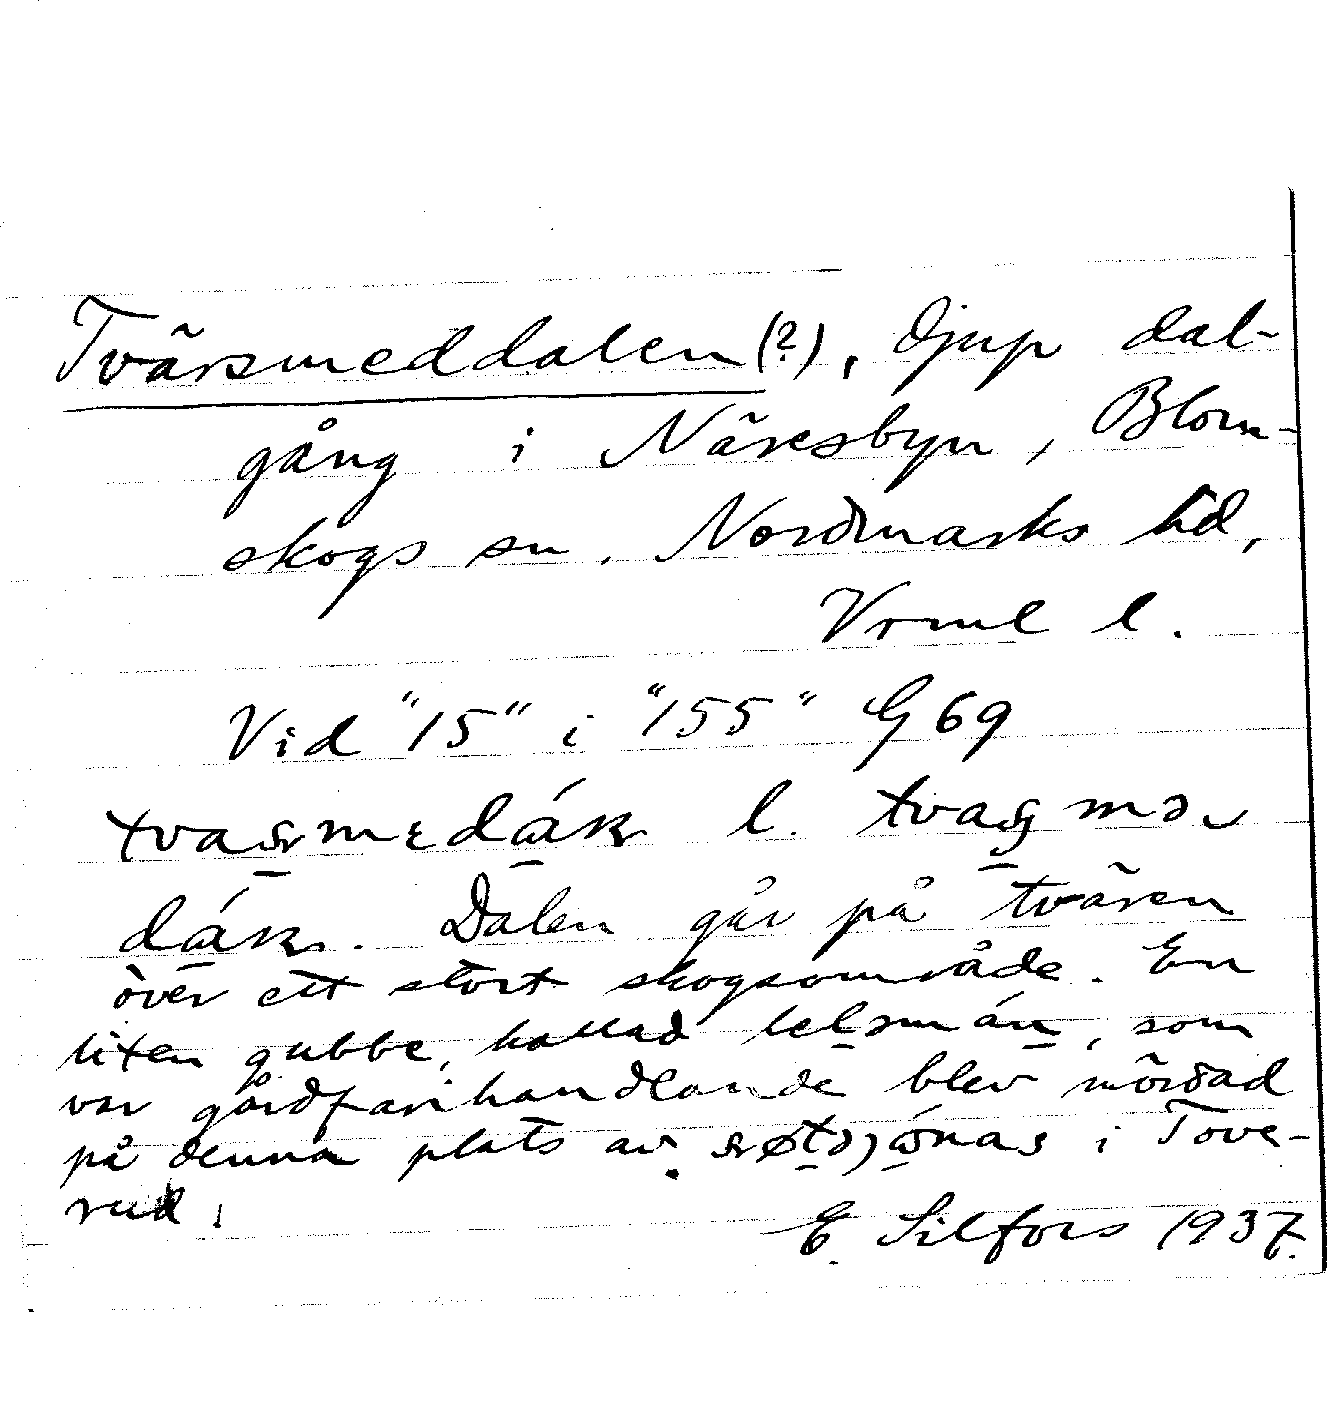 Tvärsmeddalen (?), djup dal-
gång i Näresbyn, Blom-
skogs sn. Nordmarks hd,
Vrml l.
Vid "15" i "155" G 69
l.
Dalen går på tvären
över ett stort skogsområde. En
liten gubbe, kallad som
var gårdfarihandlande blev mördad
på denna plats av i Tove-
rud.
E. Silfors 1937.